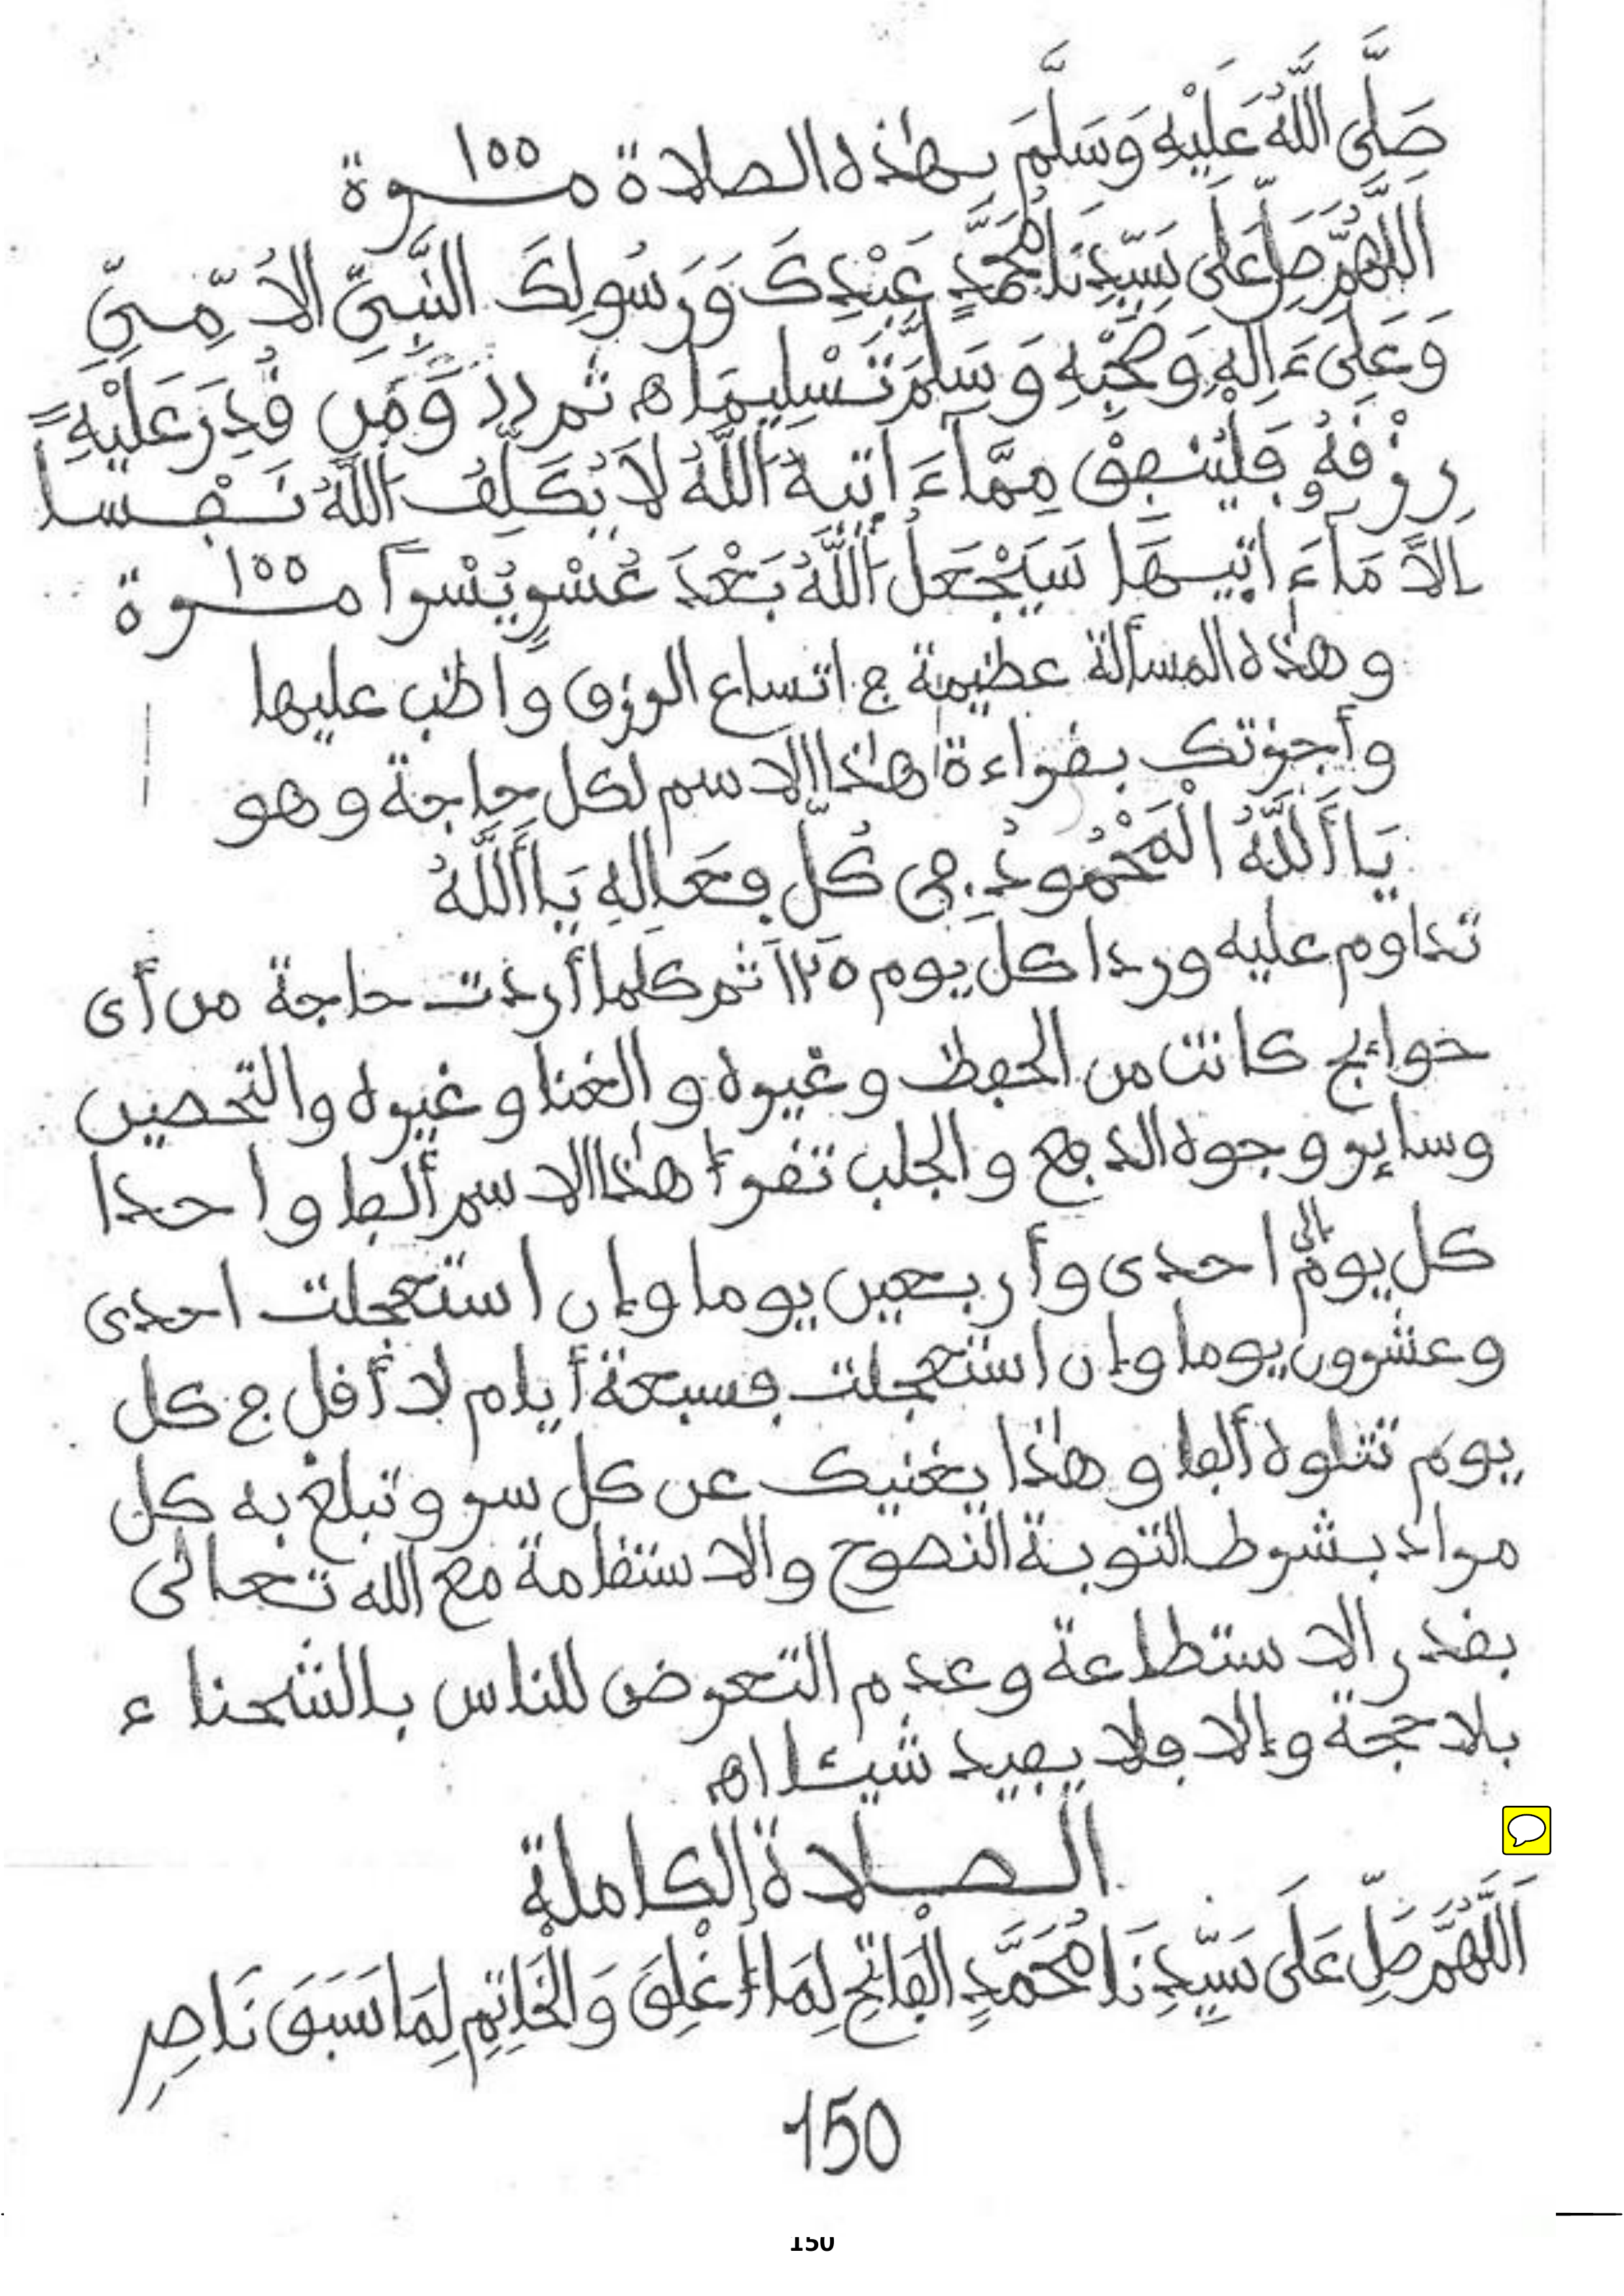 صَلَّى اللَّهُ عَلَيْهِ وَسَلَّمَ بهٰذه الصلاة مــ١٠٠ــرة
اللَّهُمَّ صَلِّ عَلَى سَيِّدِنَا مُحَمَّدٍ عَبْدِكَ وَرَسُولِكَ النَّبِيِّ الأُمِّيِّ
وَعَلَىٰ ءَالِهِ وَصَحْبِهِ وَسَلِّمْ تَسْلِيمًا اه ثم ردد وَمَن قُدِرَ عَلَيْهِ
رِزْقُهُ فَلْيُنفِقْ مِمَّآ ءَاتَيٰهُ اللَّهُ لَا يُكَلِّفُ اللَّهُ نَفْسًا
إِلَّا مَآ ءَاتَيٰهَا سَيَجْعَلُ اللَّهُ بَعْدَ عُسْرٍ يُسْرًا مــ١٠٠ــرة
وهذه المسألة عظيمة في اتساع الرزق واظب عليها
وأجزتك بقراءة هٰذا الاسم لكل حاجة وهو
يَا أَللَّهُ الْمَحْمُودُ فِي كُلِّ فِعَالِهِ يَا أَللَّهُ
تداوم عليه وردا كل يوم ١٢٥ ثم كلما أردت حاجة من أى
حوائج كانت من الحفظ وغيره والغنا وغيره والتحصين
وسائر وجوه الدفع والجلب تقرأ هٰذا الاسم ألفا واحدا
كل يوم إلى احدى وأربعين يوما وإن استعجلت احدى
وعشرون يوما وإن استعجلت فسبعة أيام لا أقل في كل
يوم تتلوه ألفا وهٰذا يغنيك عن كل سر وتبلغ به كل
مراد بشرط التوبة النصوح والاستقامة مع الله تعالى
بقدر الاستطاعة وعدم التعرض للناس بالشحناء
بلا حجة وإلا فلا يفيد شيئا اه
الصلاة الكاملة
اَللَّهُمَّ صَلِّ عَلَى سَيِّدِنَا مُحَمَّدٍ الْفَاتِحِ لِمَا أُغْلِقَ وَالْخَاتِمِ لِمَا سَبَقَ نَاصِرِ
150
150